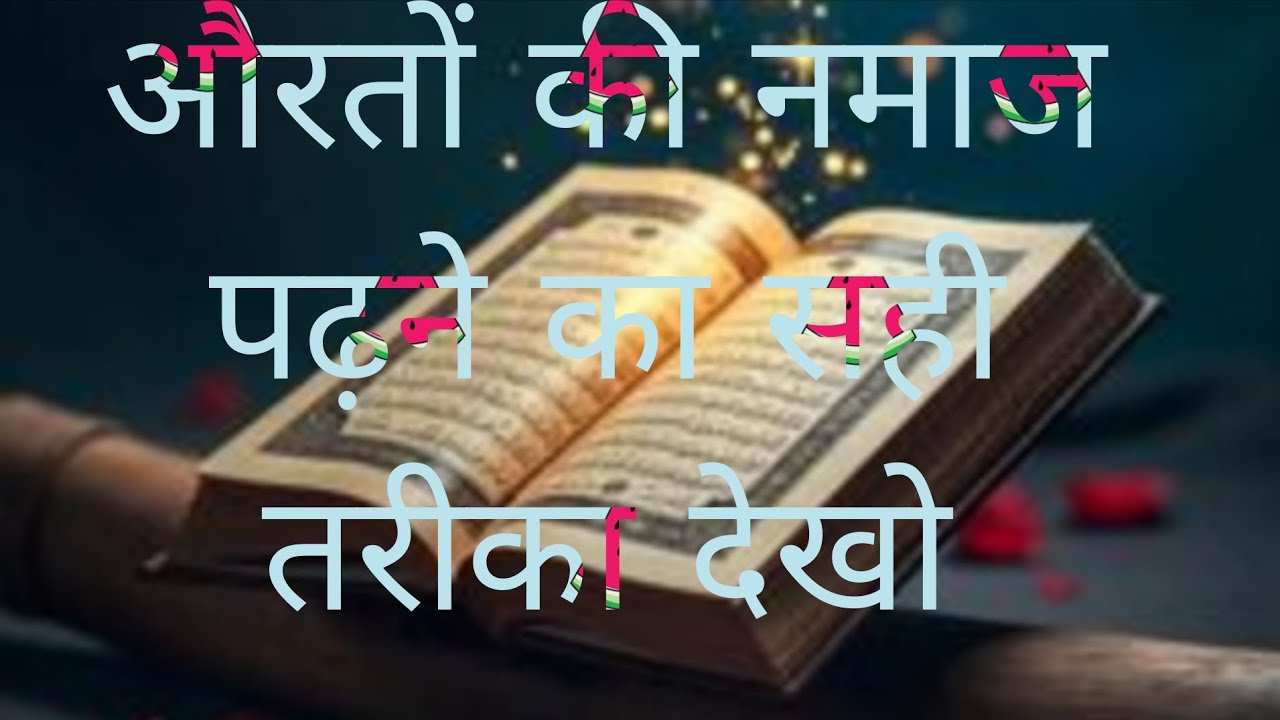 औरतों की नमाज
पढ़ने का सही
तरीका देखो